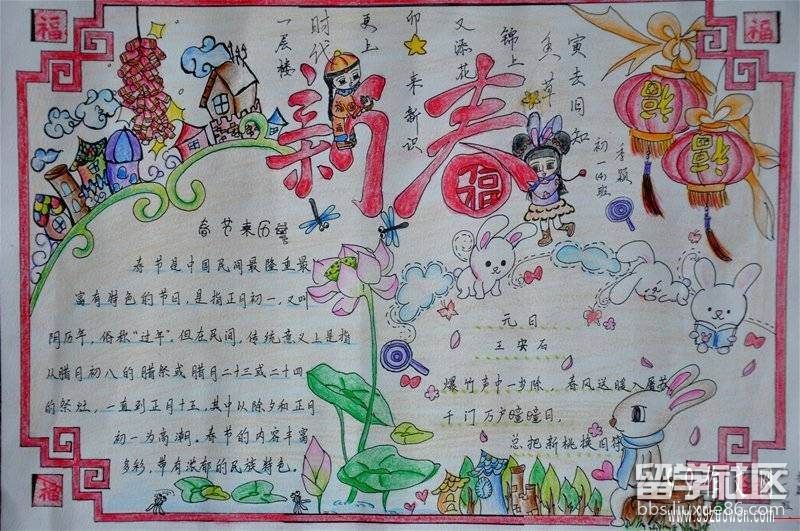 福
福
寅去旧知
鱼草
锦上
又添花
卯
来新识
更上
时代
一层楼
新春
福
福
福
初一(4)班
春节来历
春节是中国民间最隆重最
富有特色的节日，是指正月初一，又叫
阴历年，俗称“过年”，但在民间，传统意义上是指
从腊月初八的腊祭或腊月二十三或二十四
的祭灶，一直到正月十五，其中以除夕和正月
初一为高潮。春节的内容丰富
多彩，带有浓郁的民族特色。
元日
王安石
爆竹声中一岁除，春风送暖入屠苏
千门万户曈曈日，
总把新桃换旧符
福
留学社区
bbs.liuxue86.com